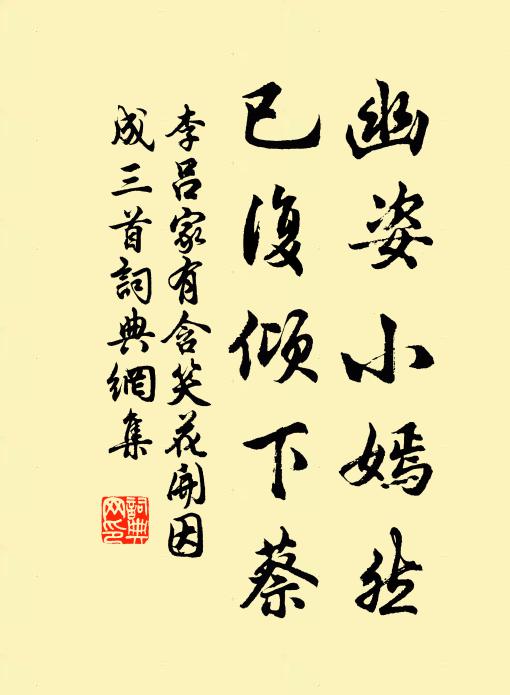 幽姿小嫣然
已復傾下蔡
李呂家有含笑花開因
成三首詞典網集
詞典
网印